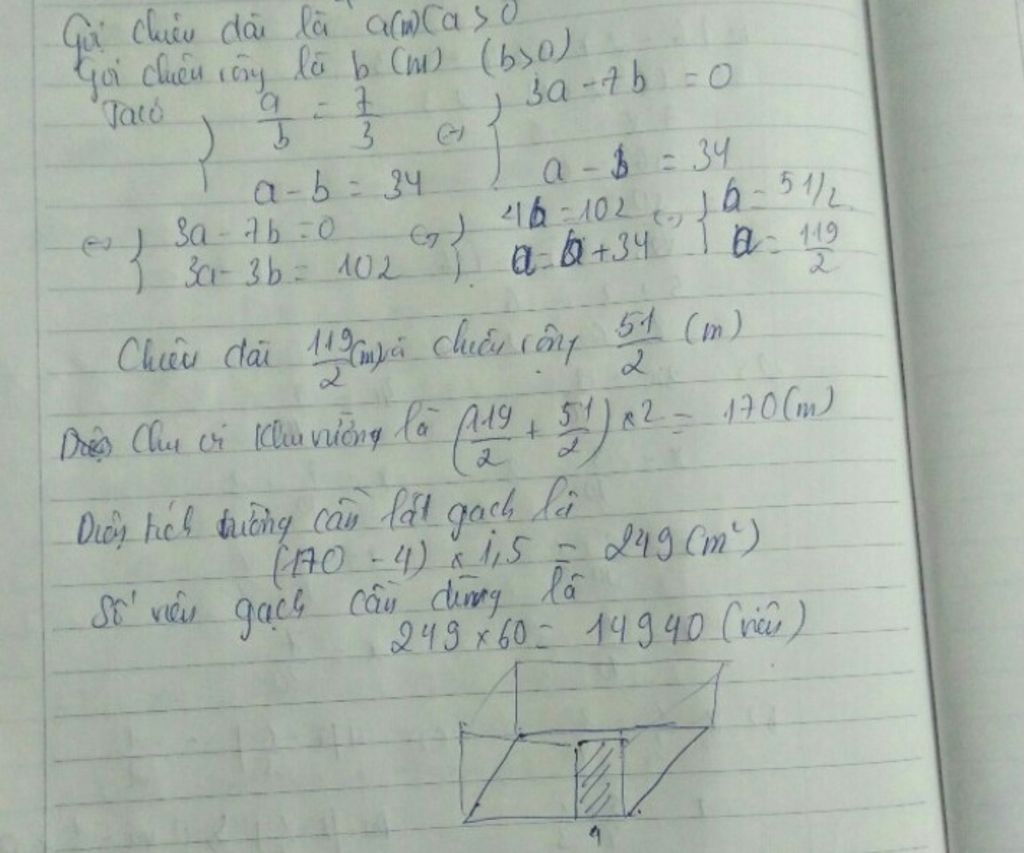 Gọi chiều dài là a(m)(a>0
Gọi chiều rộng là b (m) (b>0)
Ta có } a/b = 7/3 <=> } 3a - 7b = 0
a - b = 34 a - b = 34
<=> } 3a - 7b = 0 <=> } 4b = 102 <=> } b = 51/2
3a - 3b = 102 a = b + 34 a = 119/2
Chiều dài 119/2 (m) và chiều rộng 51/2 (m)
Chu vi khu vườn là (119/2 + 51/2) x 2 = 170(m)
Diện tích tường cần lát gạch là
(170 - 4) x 1,5 = 249 (m²)
Số viên gạch cần dùng là
249 x 60 = 14940 (viên)
4